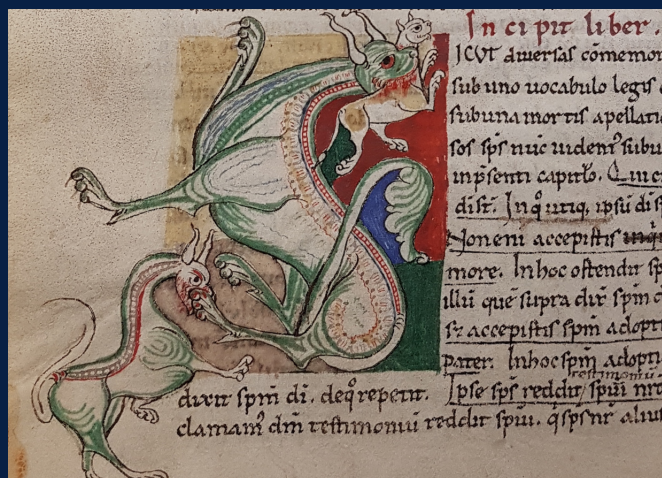 In cipit liber.
ICVT diuersas cōmemor
sub uno uocabulo legis
sub una mortis apellati
sos sps nūc uidemꝰ subu
in psenti capitlo. Qui
dist. In ꝗ utiq, ipsū dis
Non eni accepistis
more. In hoc ostendit sp
illū quē supra dix spm
sꝫ accepistis spm adopt
pater. In hoc spm adopti
testimoniū
Ipse sps reddit spui nr
dixit spm di. repetit.
clamamꝰ testimoniū reddit spui. aliuſ